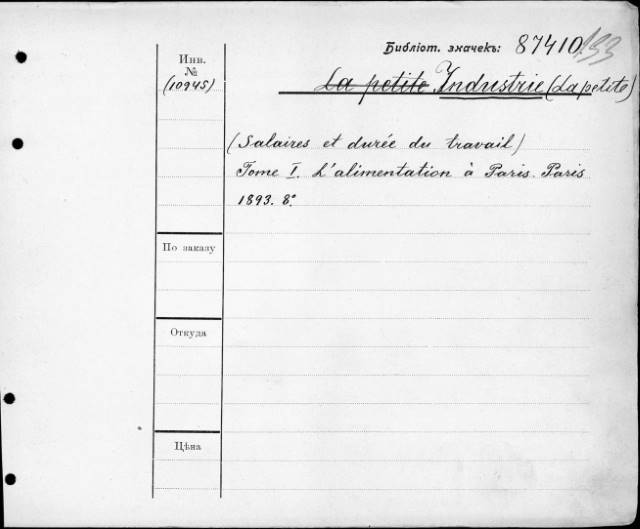 Библіот. значекъ: 87410/93
Инв.
№
(10945)
La petite Industrie (La petite)
(Salaires et durée du travail)
Tome I. L'alimentation à Paris. Paris
1893. 8°
По заказу
Откуда
Цѣна